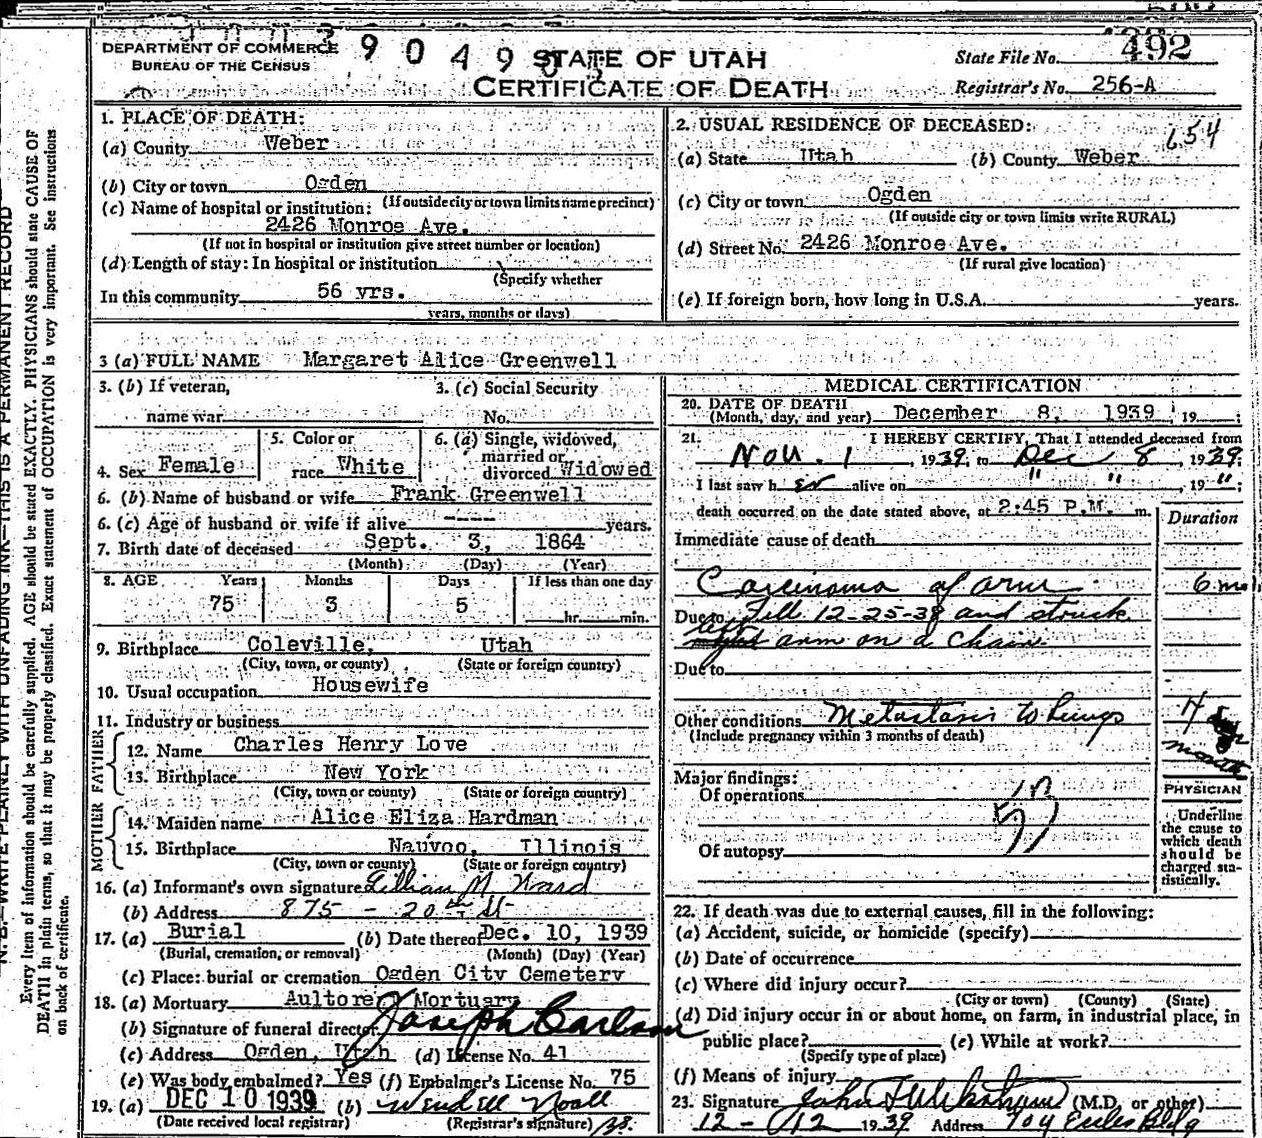 DEPARTMENT OF COMMERCE
BUREAU OF THE CENSUS
9 0 4 9
STATE OF UTAH
CERTIFICATE OF DEATH
State File No. 492
Registrar's No. 256-A
1. PLACE OF DEATH:
(a) County Weber
(b) City or town Ogden
(If outside city or town limits name precinct)
(c) Name of hospital or institution:
2426 Monroe Ave.
(If not in hospital or institution give street number or location)
(d) Length of stay: In hospital or institution
(Specify whether
In this community 56 yrs.
years, months or days)
2. USUAL RESIDENCE OF DECEASED: 654
(a) State Utah (b) County Weber
(c) City or town Ogden
(If outside city or town limits write RURAL)
(d) Street No. 2426 Monroe Ave.
(If rural give location)
(e) If foreign born, how long in U.S.A. years.
3 (a) FULL NAME Margaret Alice Greenwell
3. (b) If veteran,
name war
3. (c) Social Security
No.
4. Sex Female
5. Color or
race White
6. (a) Single, widowed,
married or
divorced Widowed
6. (b) Name of husband or wife Frank Greenwell
6. (c) Age of husband or wife if alive ---- years.
7. Birth date of deceased Sept. 3, 1864
(Month) (Day) (Year)
8. AGE Years Months Days If less than one day
75 3 5 hr. min.
9. Birthplace Coleville, Utah
(City, town, or county) (State or foreign country)
10. Usual occupation Housewife
11. Industry or business
FATHER
12. Name Charles Henry Love
13. Birthplace New York
(City, town or county) (State or foreign country)
MOTHER
14. Maiden name Alice Eliza Hardman
15. Birthplace Nauvoo, Illinois
(City, town or county) (State or foreign country)
16. (a) Informant's own signature Lillian M. Ward
(b) Address 875 - 20th St
17. (a) Burial (b) Date thereof Dec. 10, 1939
(Burial, cremation, or removal) (Month) (Day) (Year)
(c) Place: burial or cremation Ogden City Cemetery
18. (a) Mortuary Aultorest Mortuary
(b) Signature of funeral director Joseph Carlson
(c) Address Ogden, Utah (d) License No. 41
(e) Was body embalmed? Yes (f) Embalmer's License No. 75
19. (a) DEC 10 1939 (b) Wendell Noall
(Date received local registrar) (Registrar's signature)
MEDICAL CERTIFICATION
20. DATE OF DEATH
(Month, day, and year) December 8, 1939 19 ;
21. I HEREBY CERTIFY, That I attended deceased from
Nov. 1, 1939, to Dec 8, 1939.
I last saw her alive on " ", 19 ";
death occurred on the date stated above, at 2:45 P.M. m.
Duration
Immediate cause of death
Carcinoma of arm 6 mo
Due to Fell 12-25-38 and struck
left arm on a chair
Due to
Other conditions Metastasis to lungs
(Include pregnancy within 3 months of death)
month
Major findings:
Of operations
Of autopsy
PHYSICIAN
Underline
the cause to
which death
should be
charged sta-
tistically.
22. If death was due to external causes, fill in the following:
(a) Accident, suicide, or homicide (specify)
(b) Date of occurrence
(c) Where did injury occur?
(City or town) (County) (State)
(d) Did injury occur in or about home, on farm, in industrial place, in
public place? (e) While at work?
(Specify type of place)
(f) Means of injury
23. Signature John (M.D. or other)
12-12 1939 Address 704 Eccles Bldg
N. B.—WRITE PLAINLY WITH UNFADING INK—THIS IS A PERMANENT RECORD
Every item of information should be carefully supplied. AGE should be stated EXACTLY. PHYSICIANS should state CAUSE OF
DEATH in plain terms, so that it may be properly classified. Exact statement of OCCUPATION is very important. See instructions
on back of certificate.